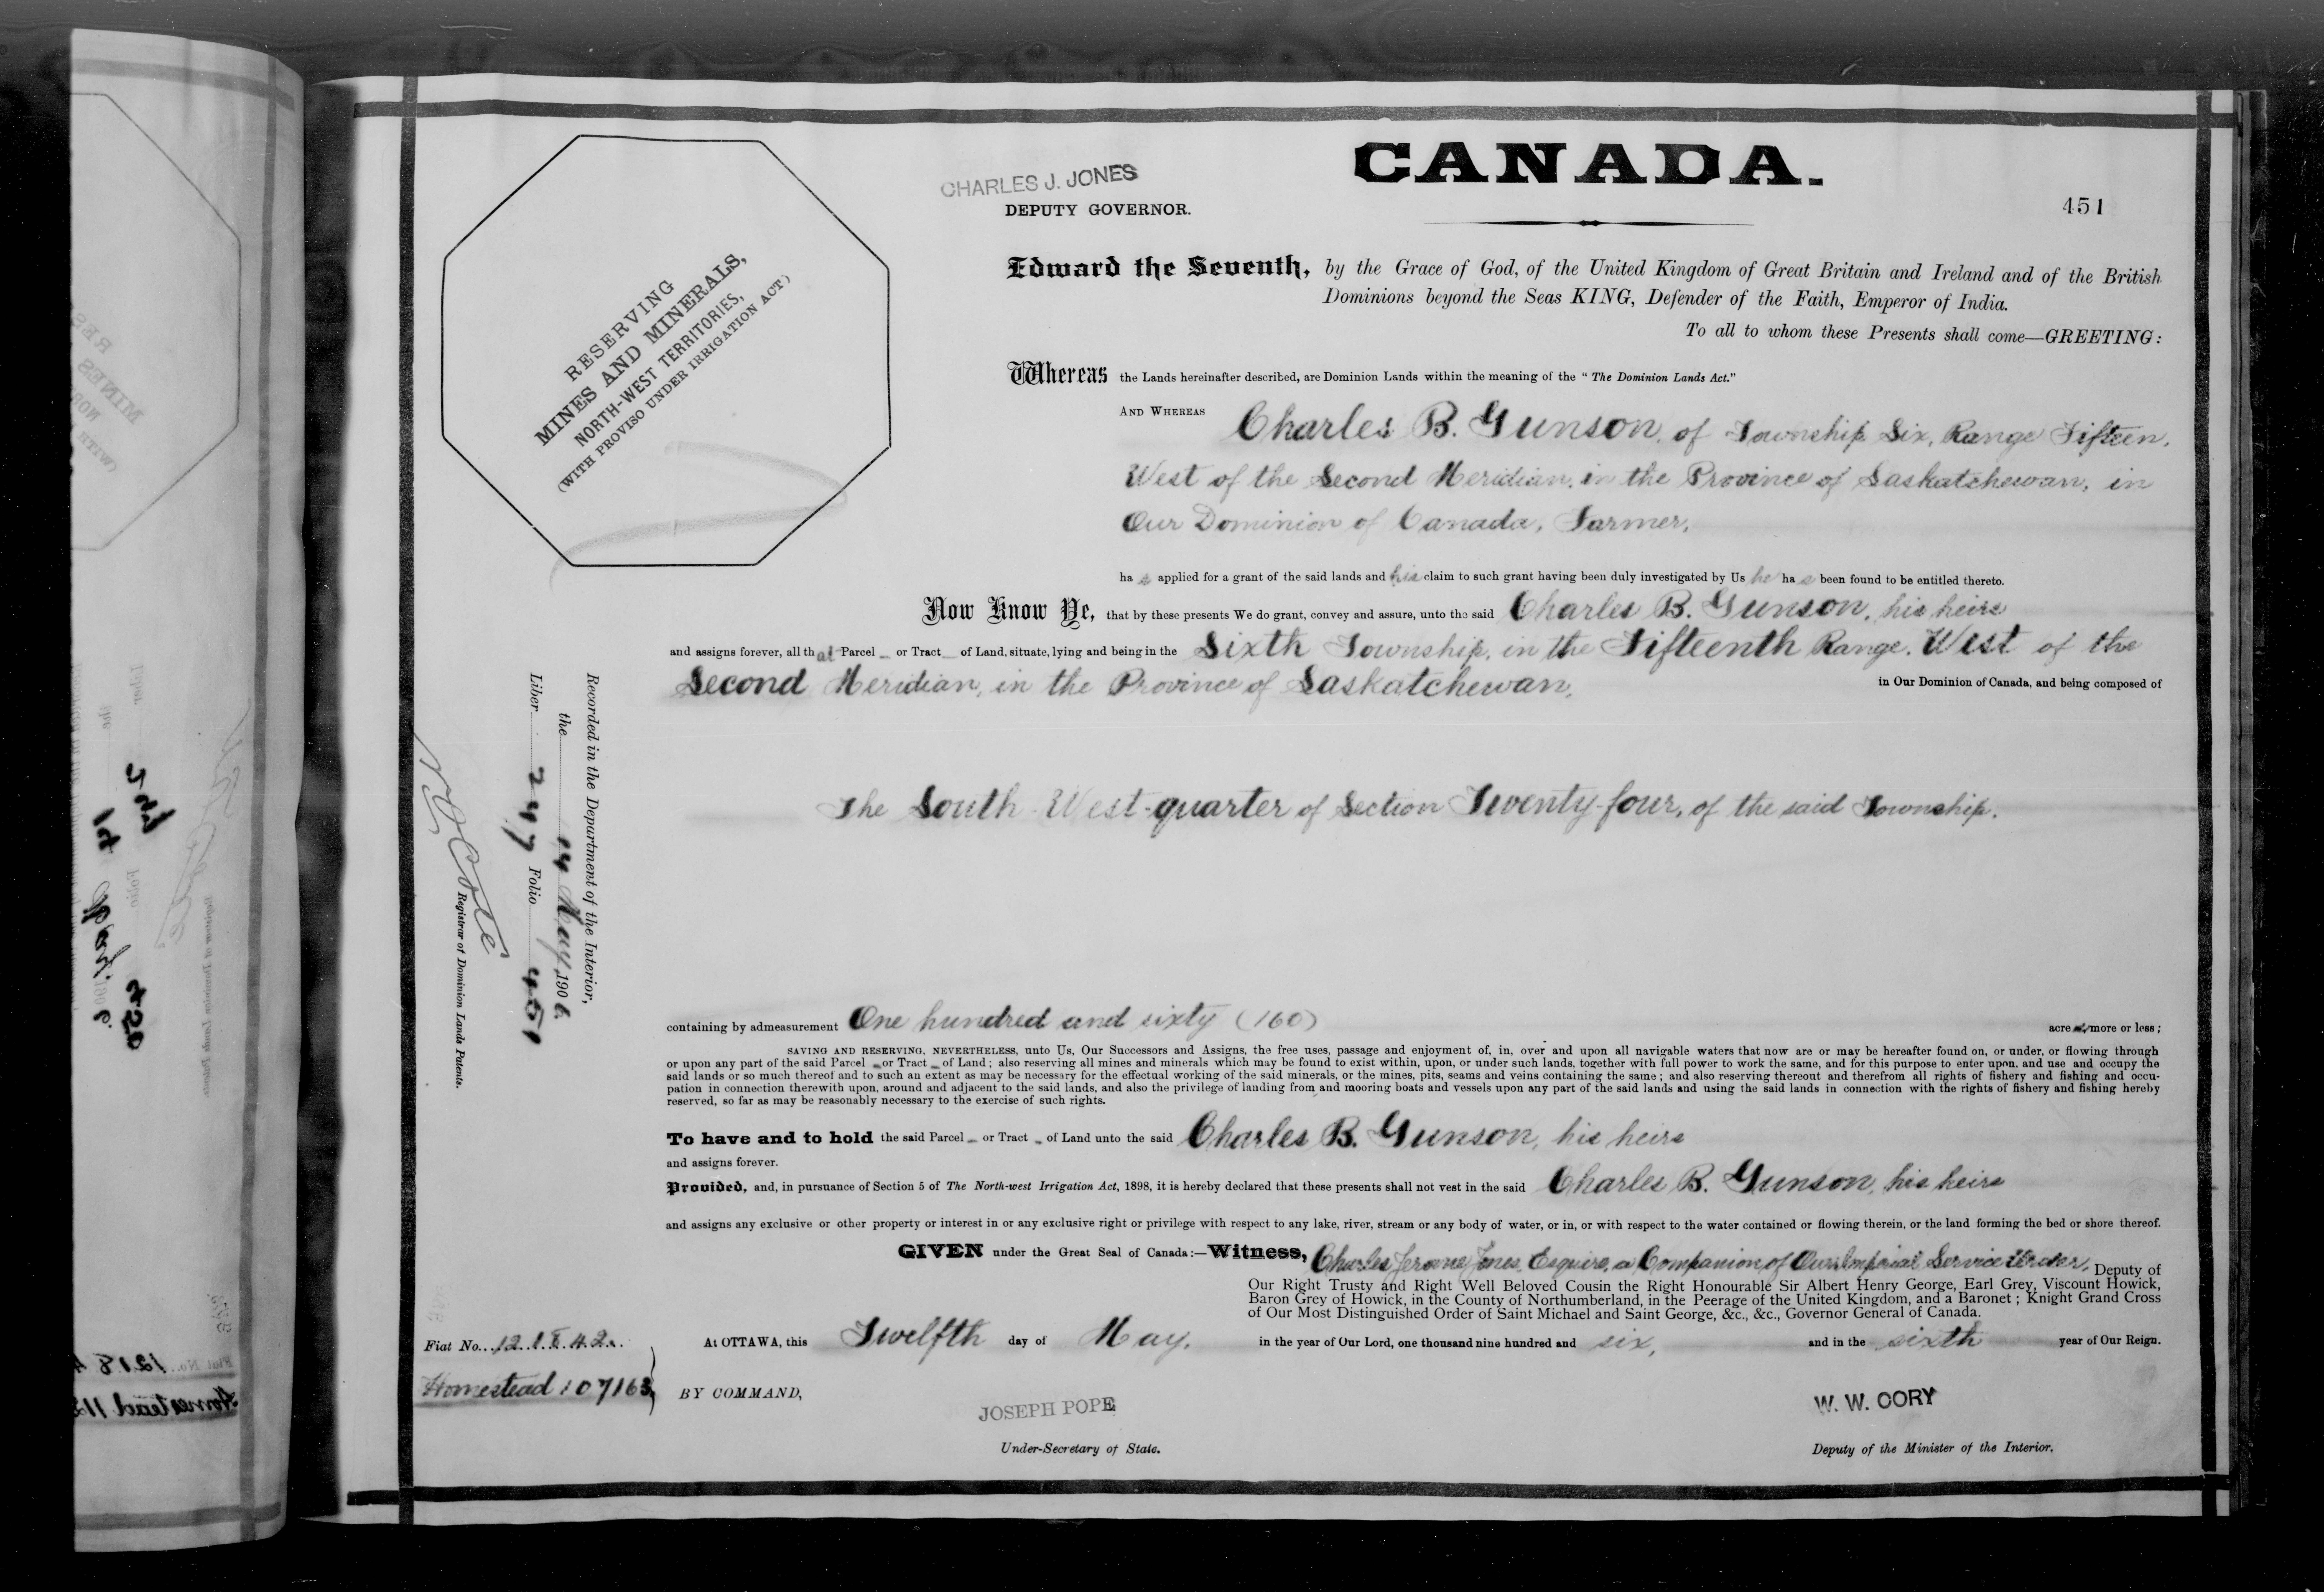 CANADA.
CHARLES J. JONES
DEPUTY GOVERNOR.
451
RESERVING
MINES AND MINERALS,
NORTH-WEST TERRITORIES,
(WITH PROVISO UNDER IRRIGATION ACT)
Edward the Seventh, by the Grace of God, of the United Kingdom of Great Britain and Ireland and of the British
Dominions beyond the Seas KING, Defender of the Faith, Emperor of India.
To all to whom these Presents shall come—GREETING:
Whereas the Lands hereinafter described, are Dominion Lands within the meaning of the "The Dominion Lands Act."
AND WHEREAS Charles B. Gunson, of Township Six, Range Fifteen,
West of the Second Meridian, in the Province of Saskatchewan, in
Our Dominion of Canada, Farmer,
has applied for a grant of the said lands and his claim to such grant having been duly investigated by Us he has been found to be entitled thereto.
Now Know Ye, that by these presents We do grant, convey and assure, unto the said Charles B. Gunson, his heirs
and assigns forever, all that Parcel or Tract of Land, situate, lying and being in the Sixth Township, in the Fifteenth Range, West of the
Second Meridian, in the Province of Saskatchewan, in Our Dominion of Canada, and being composed of
The South West-quarter of Section Twenty-four, of the said Township.
containing by admeasurement One hundred and sixty (160) acres, more or less;
SAVING AND RESERVING, NEVERTHELESS, unto Us, Our Successors and Assigns, the free uses, passage and enjoyment of, in, over and upon all navigable waters that now are or may be hereafter found on, or under, or flowing through
or upon any part of the said Parcel or Tract of Land; also reserving all mines and minerals which may be found to exist within, upon, or under such lands, together with full power to work the same, and for this purpose to enter upon, and use and occupy the
said lands or so much thereof and to such an extent as may be necessary for the effectual working of the said minerals, or the mines, pits, seams and veins containing the same; and also reserving thereout and therefrom all rights of fishery and fishing and occu-
pation in connection therewith upon, around and adjacent to the said lands, and also the privilege of landing from and mooring boats and vessels upon any part of the said lands and using the said lands in connection with the rights of fishery and fishing hereby
reserved, so far as may be reasonably necessary to the exercise of such rights.
To have and to hold the said Parcel or Tract of Land unto the said Charles B. Gunson, his heirs
and assigns forever.
Provided, and, in pursuance of Section 5 of The North-west Irrigation Act, 1898, it is hereby declared that these presents shall not vest in the said Charles B. Gunson, his heirs
and assigns any exclusive or other property or interest in or any exclusive right or privilege with respect to any lake, river, stream or any body of water, or in, or with respect to the water contained or flowing therein, or the land forming the bed or shore thereof.
GIVEN under the Great Seal of Canada:—Witness, Charles Jerome Jones, Esquire, a Companion of Our Imperial Service Order, Deputy of
Our Right Trusty and Right Well Beloved Cousin the Right Honourable Sir Albert Henry George, Earl Grey, Viscount Howick,
Baron Grey of Howick, in the County of Northumberland, in the Peerage of the United Kingdom, and a Baronet; Knight Grand Cross
of Our Most Distinguished Order of Saint Michael and Saint George, &c., &c., Governor General of Canada.
At OTTAWA, this Twelfth day of May, in the year of Our Lord, one thousand nine hundred and six, and in the sixth year of Our Reign.
Fiat No. 121842
Homestead 107163
BY COMMAND,
JOSEPH POPE
Under-Secretary of State.
W. W. CORY
Deputy of the Minister of the Interior.
Recorded in the Department of the Interior,
the 14 May 1906
Liber 247 Folio 451
Registrar of Dominion Lands Patents.